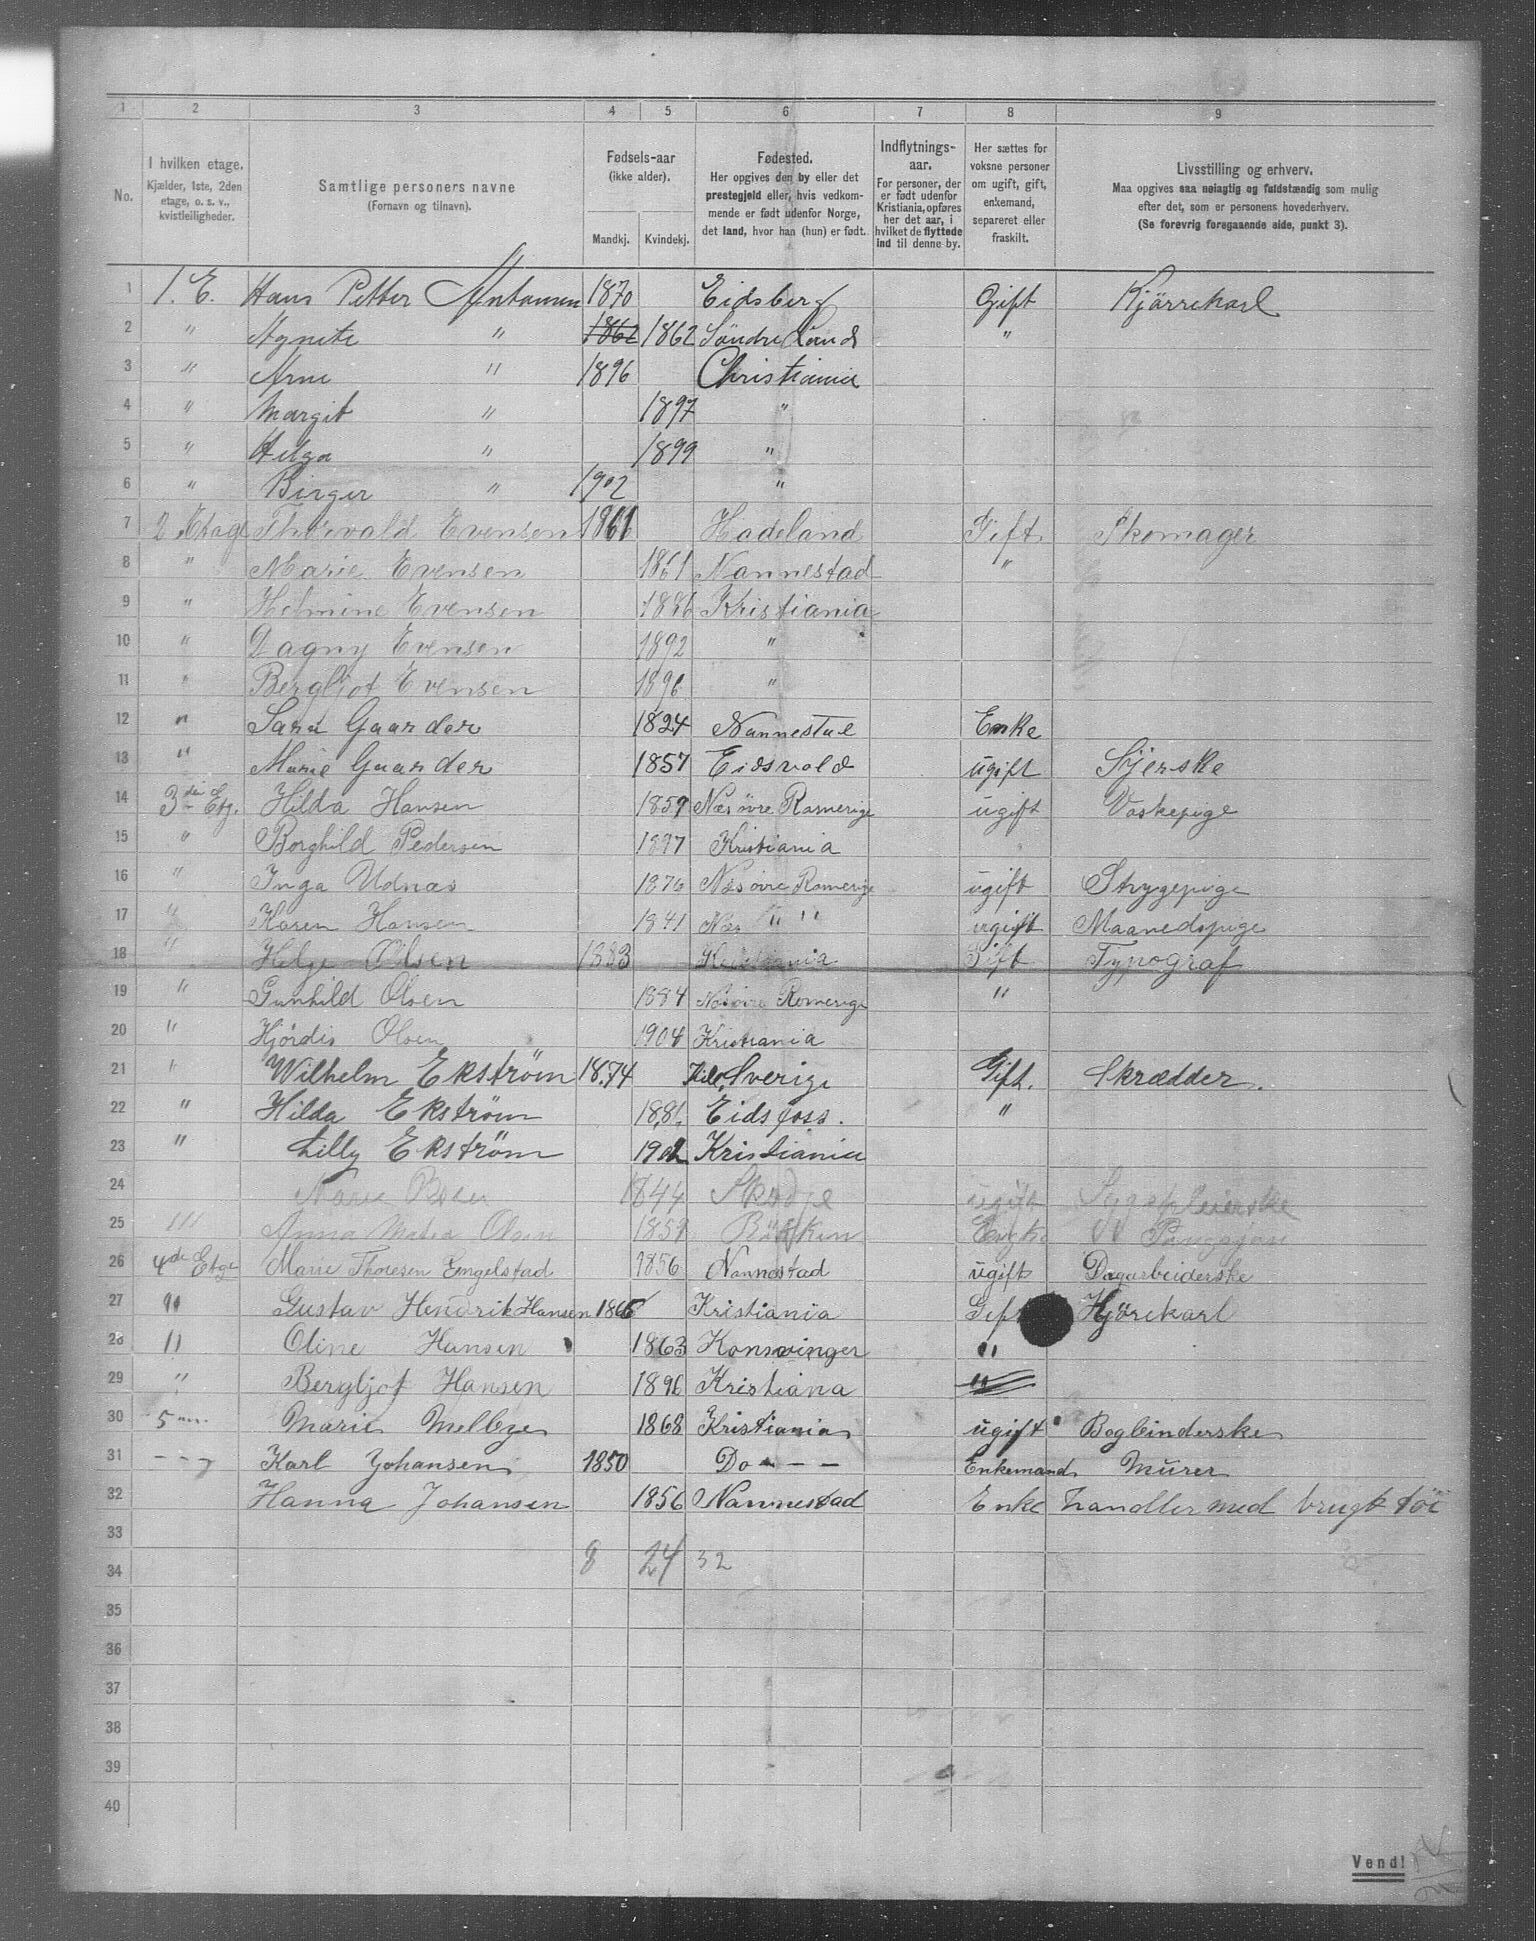 1 2 3 4 5 6 7 8 9
No.
I hvilken etage.
Kjælder, 1ste, 2den
etage, o. s. v.,
kvistleiligheder.
Samtlige personers navne
(Fornavn og tilnavn).
Fødsels-aar
(ikke alder).
Mandkj. Kvindekj.
Fødested.
Her opgives den by eller det
prestegjeld eller, hvis vedkom-
mende er født udenfor Norge,
det land, hvor han (hun) er født.
Indflytnings-
aar.
For personer, der
er født udenfor
Kristiania, opføres
her det aar, i
hvilket de flyttede
ind til denne by.
Her sættes for
voksne personer
om ugift, gift,
enkemand,
separeret eller
fraskilt.
Livsstilling og erhverv.
Maa opgives saa nøiagtig og fuldstændig som mulig
efter det, som er personens hovederhverv.
(Se forøvrig foregaaende side, punkt 3).
1 1. E. Hans Petter Antonsen 1870 Eidsberg Gift Kjørrekarl
2 " Agnete " 1862 1862 Søndre Land "
3 " Arne " 1896 Christiania
4 " Margit " 1897 "
5 " Helga " 1899 "
6 " Birger " 1902 "
7 2 Etage Thorvald Evensen 1861 Hadeland Gift Skomager
8 " Marie Evensen 1861 Nannestad "
9 " Helmine Evensen 1886 Kristiania
10 " Dagny Evensen 1892 "
11 " Bergljot Evensen 1896 "
12 " Sara Gaarder 1824 Nannestad Enke
13 " Marie Gaarder 1857 Eidsvold ugift Syerske
14 3die Etg. Hilda Hansen 1859 Næs øvre Romerige ugift Vaskepige
15 " Borghild Pedersen 1897 Kristiania
16 " Inga Udnæs 1876 Næs øvre Romerige ugift Strygepige
17 " Karen Hansen 1841 Næs " " ugift Maanedspige
18 " Helge Olsen 1883 Kristiania Gift Typograf
19 " Gunhild Olsen 1884 Næs øvre Romerige "
20 " Hjørdis Olsen 1904 Kristiania
21 " Wilhelm Ekstrøm 1874 Sverige Gift. Skrædder.
22 " Hilda Ekstrøm 1881 Eidsfoss. "
23 " Lilly Ekstrøm 1902 Kristiania
24 Marie 1844 ugift Sygepleierske
25 " Anna Olsen 1859
26 4de Etge Marie Thoresen Engelstad 1856 Nannestad ugift Dagarbeiderske
27 " Gustav Hendrik Hansen 1865 Kristiania Gift Kjørekarl
28 " Oline Hansen 1863 Konsvinger "
29 " Bergljot Hansen 1896 Kristiana "
30 5 Marie Melbye 1868 Kristiania ugift Bogbinderske
31 - - Karl Johansen 1850 Do - - - Enkemand Murer
32 Hanna Johansen 1856 Nannestad Enke handler med brugt töi
33
34 8 24 32
35
36
37
38
39
40
Vend!